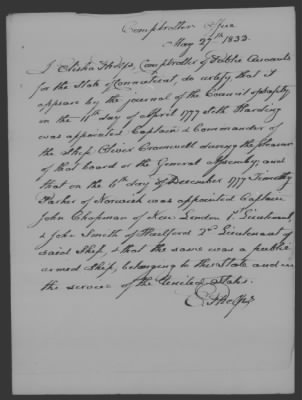 Comptrollers Office
May 27th 1833
I Elisha Phelps, Comptroller of Public Accounts
for the State of Connecticut, do certify that it
appears by the journal of the Council of Safety,
on the 11th day of April 1777 Seth Harding
was appointed Captain & Commander of
the Ship Oliver Cromwell during the pleasure
of that board or the General Assembly; and
that on the 6th day of December 1777 Timothy
Parker of Norwich was appointed Captain
John Chapman of New London 1st Lieutenant,
& John Smith of Hartford 2d Lieutenant of
said Ship, & that the same was a public
armed Ship, belonging to this State and in
the service of the United States.
E Phelps